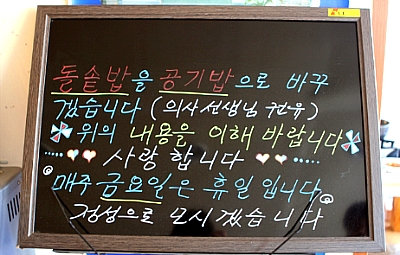 돌솥밥을 공기밥으로 바꾸
겠습니다 (의사선생님 권유)
위의 내용을 이해 바랍니다
사랑합니다
매주 금요일은 휴일입니다
정성으로 모시겠습니다